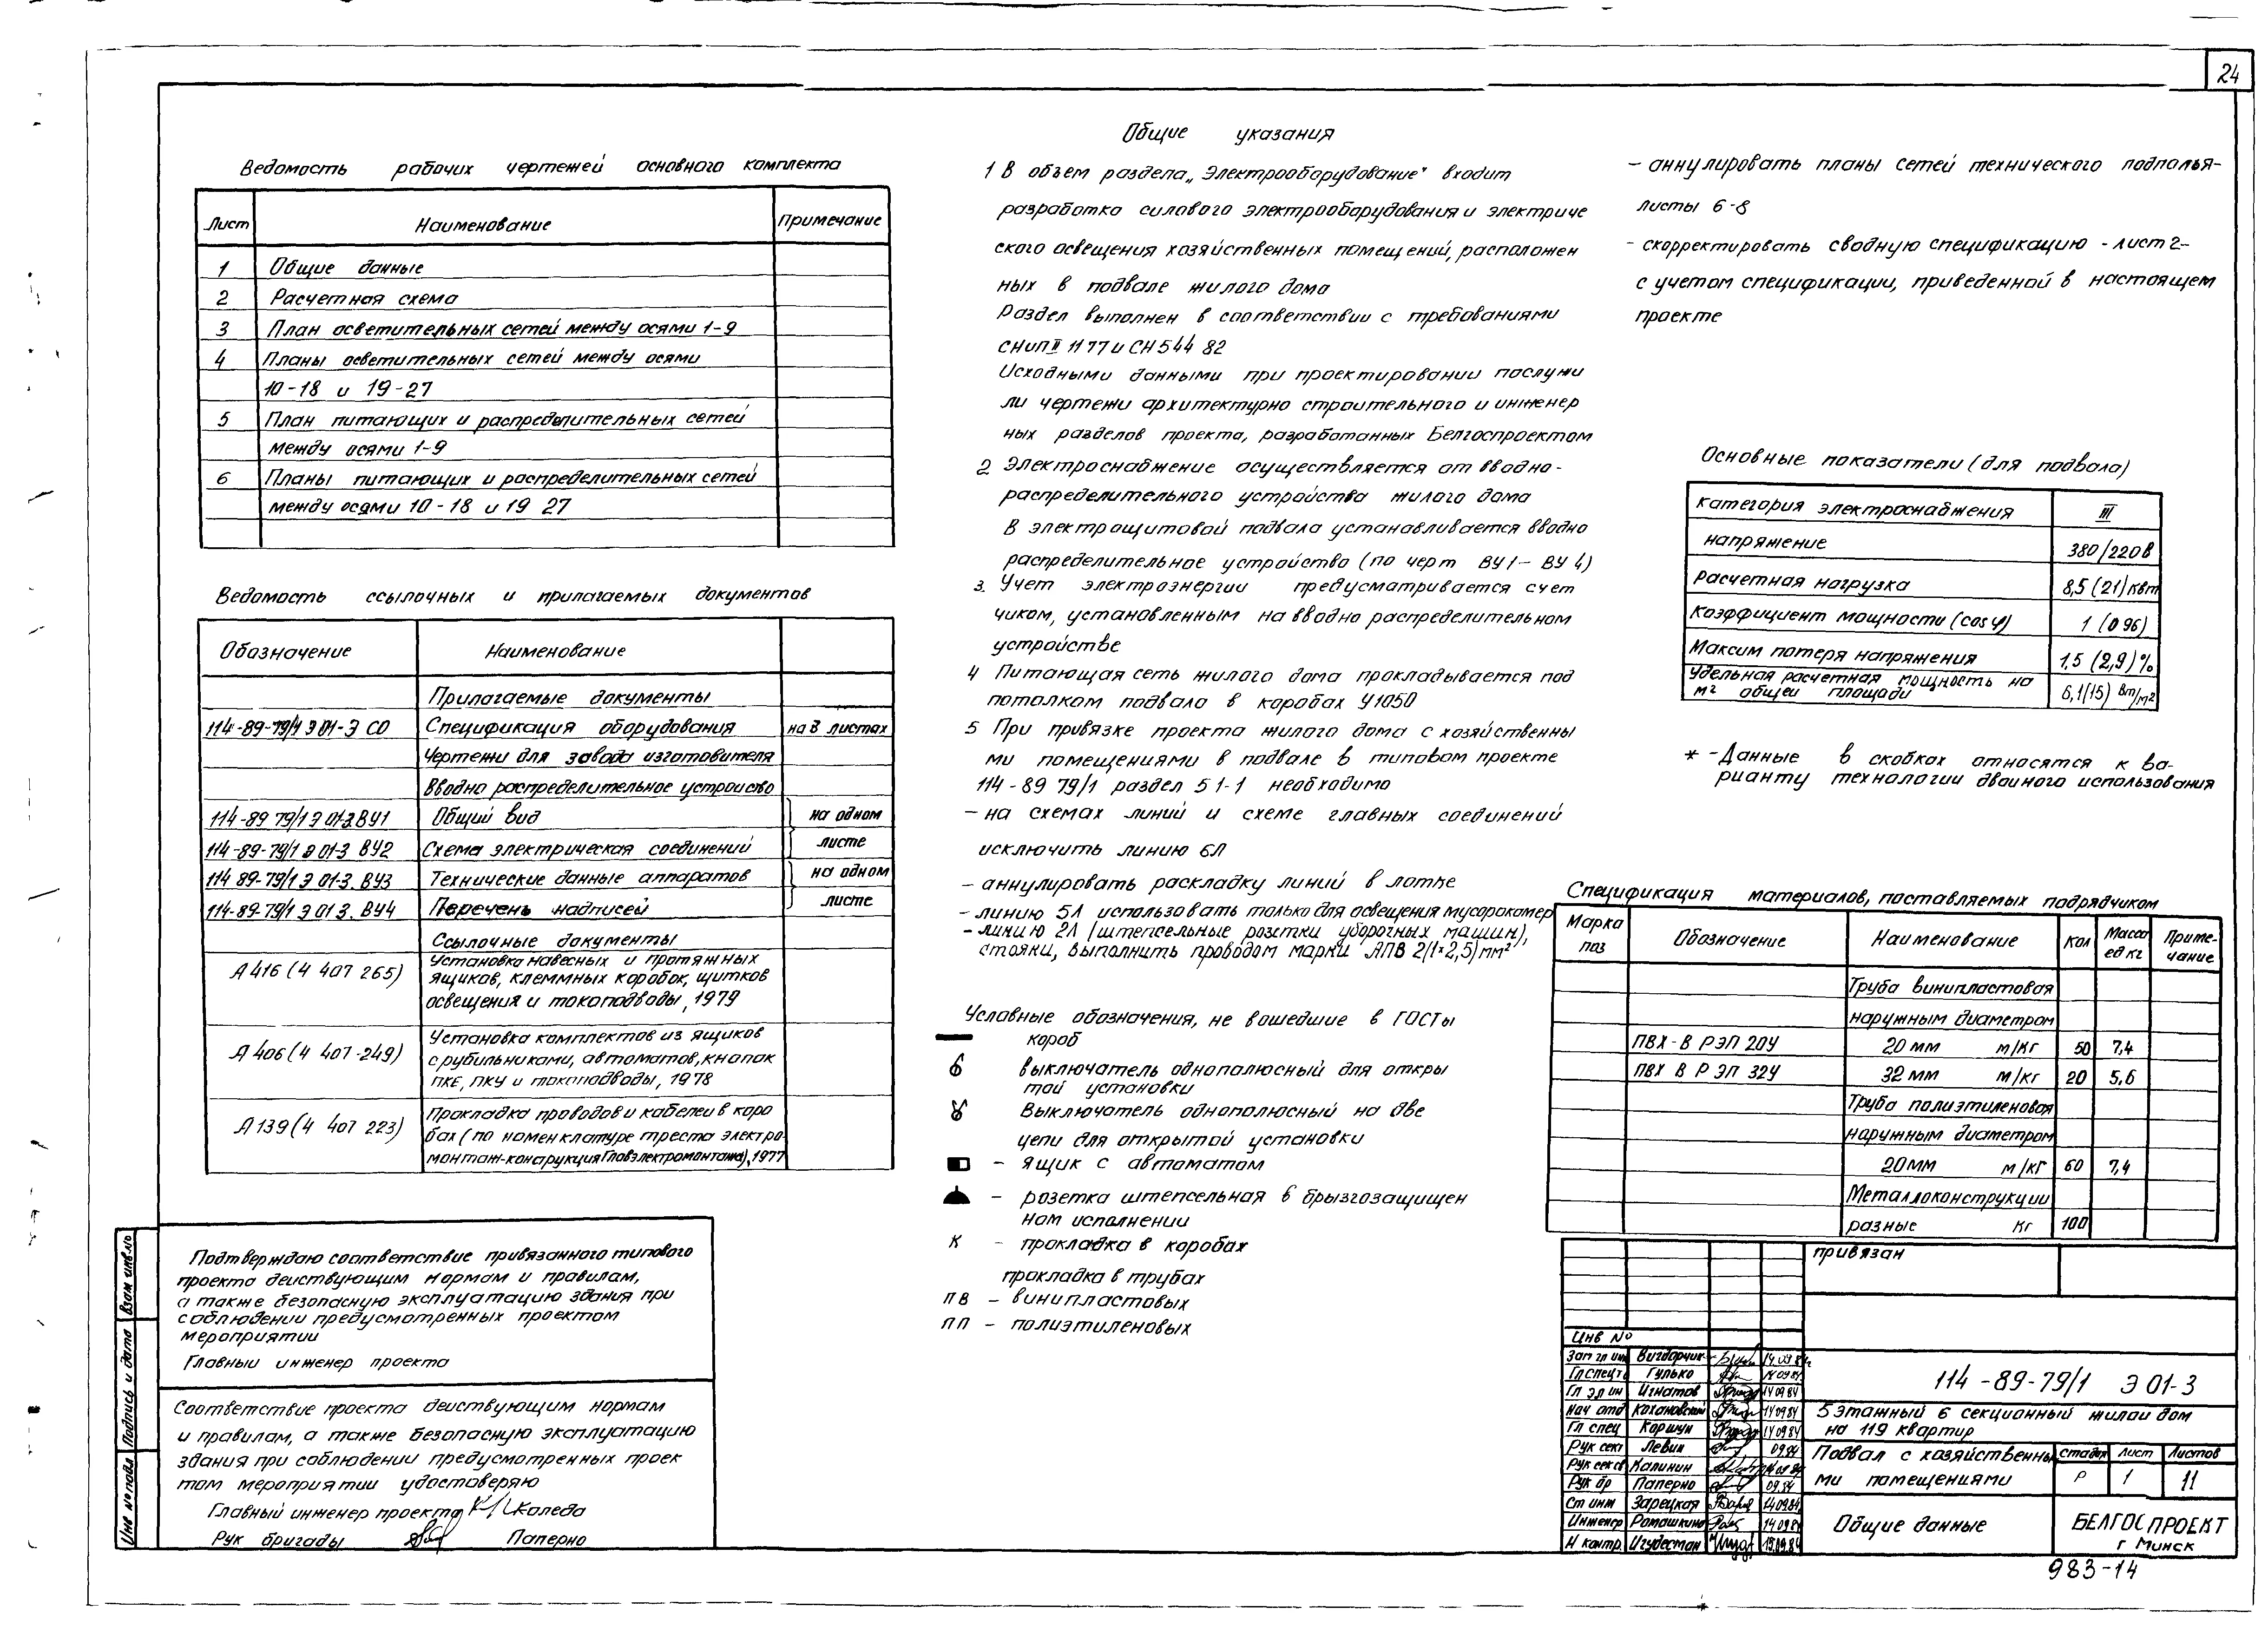 24
Ведомость рабочих чертежей основного комплекта
Лист Наименование Примечание
1 Общие данные
2 Расчетная схема
3 План осветительных сетей между осями 1-9
4 Планы осветительных сетей между осями
10-18 и 19-27
5 План питающих и распределительных сетей
между осями 1-9
6 Планы питающих и распределительных сетей
между осями 10-18 и 19 27
Ведомость ссылочных и прилагаемых документов
Обозначение Наименование
Прилагаемые документы
114-89-79/1 Э 01-3 СО Спецификация оборудования на 3 листах
Чертежи для завода изготовителя
Вводно распределительное устройство
114-89 79/1 Э 01-3 ВУ1 Общий вид на одном
114-89-79/1 Э 01-3 ВУ2 Схема электрическая соединений листе
114 89-79/1 Э 01-3. ВУ3 Технические данные аппаратов на одном
114-89-79/1 Э 01 3. ВУ4 Перечень надписей листе
Ссылочные документы
А416 (4 407 265) Установка навесных и протяжных
ящиков, клеммных коробок, щитков
освещения и токоподводы, 1979
А406 (4 407-249) Установка комплектов из ящиков
с рубильниками, автоматов, кнопок
ПКЕ, ПКУ и токоподводы, 1978
А139 (4 407 223) Прокладка проводов и кабелей в коро
бах (по номенклатуре треста электро-
монтаж-конструкция Главэлектромонтажа), 1977
Подтверждаю соответствие привязанного типового
проекта действующим нормам и правилам,
а также безопасную эксплуатацию здания при
соблюдении предусмотренных проектом
мероприятии
Главный инженер проекта
Соответствие проекта действующим нормам
и правилам, а также безопасную эксплуатацию
здания при соблюдении предусмотренных проек
том мероприятии удостоверяю
Главный инженер проекта Коледа
Рук бригады Паперно
Взам инв.№
Подпись и дата
Инв № подл
Общие указания
1 В объем раздела „Электрооборудование" входит
разработка силового электрооборудования и электриче
ского освещения хозяйственных помещений, расположен
ных в подвале жилого дома
Раздел выполнен в соответствии с требованиями
СНиП II 11 77 и СН 544 82
Исходными данными при проектировании послужи
ли чертежи архитектурно строительного и инженер
ных разделов проекта, разработанных Белгоспроектом
2 Электроснабжение осуществляется от вводно-
распределительного устройства жилого дома
В электрощитовой подвала устанавливается вводно
распределительное устройство (по черт ВУ1- ВУ 4)
3. Учет электроэнергии предусматривается счет
чиком, установленным на вводно распределительном
устройстве
4 Питающая сеть жилого дома прокладывается под
потолком подвала в коробах У1050
5 При привязке проекта жилого дома с хозяйственны
ми помещениями в подвале в типовом проекте
114-89 79/1 раздел 5 1-1 необходимо
- на схемах линий и схеме главных соединений
исключить линию 6Л
- аннулировать раскладку линий в лотке
- линию 5Л использовать только для освещения мусорокамер
- линию 2Л (штепсельные розетки уборочных машин),
стояки, выполнить проводом марки АПВ 2(1×2,5)мм²
Условные обозначения, не вошедшие в ГОСТы
короб
выключатель однополюсный для откры
той установки
Выключатель однополюсный на две
цепи для открытой установки
- ящик с автоматом
- розетка штепсельная в брызгозащищен
ном исполнении
К - прокладка в коробах
прокладка в трубах
ПВ - винипластовых
ПП - полиэтиленовых
- аннулировать планы сетей технического подполья-
листы 6-8
- скорректировать сводную спецификацию - лист 2-
с учетом спецификации, приведенной в настоящем
проекте
Основные показатели (для подвала)
Категория электроснабжения III
напряжение 380/220в
Расчетная нагрузка 8,5 (21) квт
Коэффициент мощности (cos φ) 1 (0 96)
Максим потеря напряжения 1,5 (2,9) %
Удельная расчетная мощность на
м² общей площади 6,1(15) Вт/м²
* - Данные в скобках относятся к ва-
рианту технологии двойного использования
Спецификация материалов, поставляемых подрядчиком
Марка поз Обозначение Наименование Кол Масса ед кг Приме-чание
Труба винипластовая
наружным диаметром
ПВХ-В Р ЭП 20У 20 мм м/кг 50 7,4
ПВХ В Р ЭП 32У 32 мм м/кг 20 5,6
Труба полиэтиленовая
наружным диаметром
20мм м/кг 60 7,4
Металлоконструкции
разные кг 100
привязан
Инв №
Зам гл инж Вигдорчик 14.09.84
Гл спец Гулько 14.09.84
Гл эл ин Игнатов 14 09 84
Нач отд Кохановский 14 09.84
Гл спец Коршун 14 09.84
Рук сект Левин 09.84
Рук сек св Калинин
Рук бр Паперно 09.84
Ст инж Зарецкая 14.09.84
Инженер Ромашкина 14 09.84
Н контр. Игудесман 19.09.84
114-89-79/1 Э 01-3
5 этажный 6 секционный жилой дом
на 119 квартир
Подвал с хозяйственны
ми помещениями
стадия лист Листов
Р 1 11
Общие данные
БЕЛГОСПРОЕКТ
г Минск
983-14